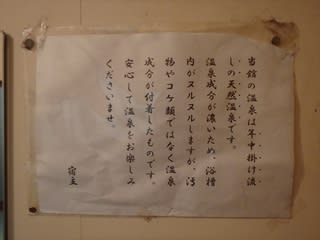 当館の温泉は年中掛け流
しの天然温泉です。
温泉成分が濃いため、浴槽
内がヌルヌルしますが、汚
物やコケ類ではなく温泉
成分が付着したものです。
安心して温泉をお楽しみ
くださいませ。
宿主